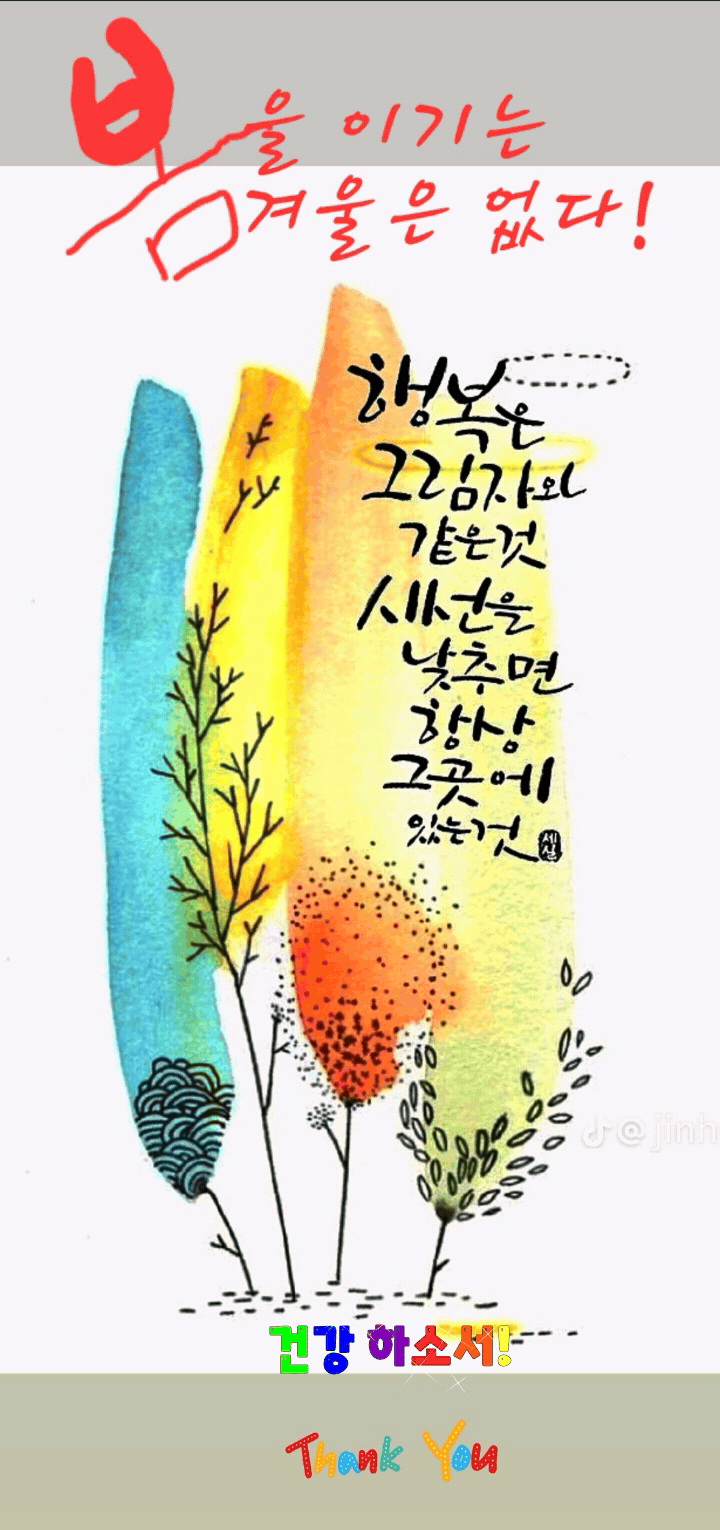 봄을 이기는
겨울은 없다!
행복은
그림자와
같은것
시선을
낮추면
항상
그곳에
있는것
세실
@jinh
건강 하소서!
Thank You